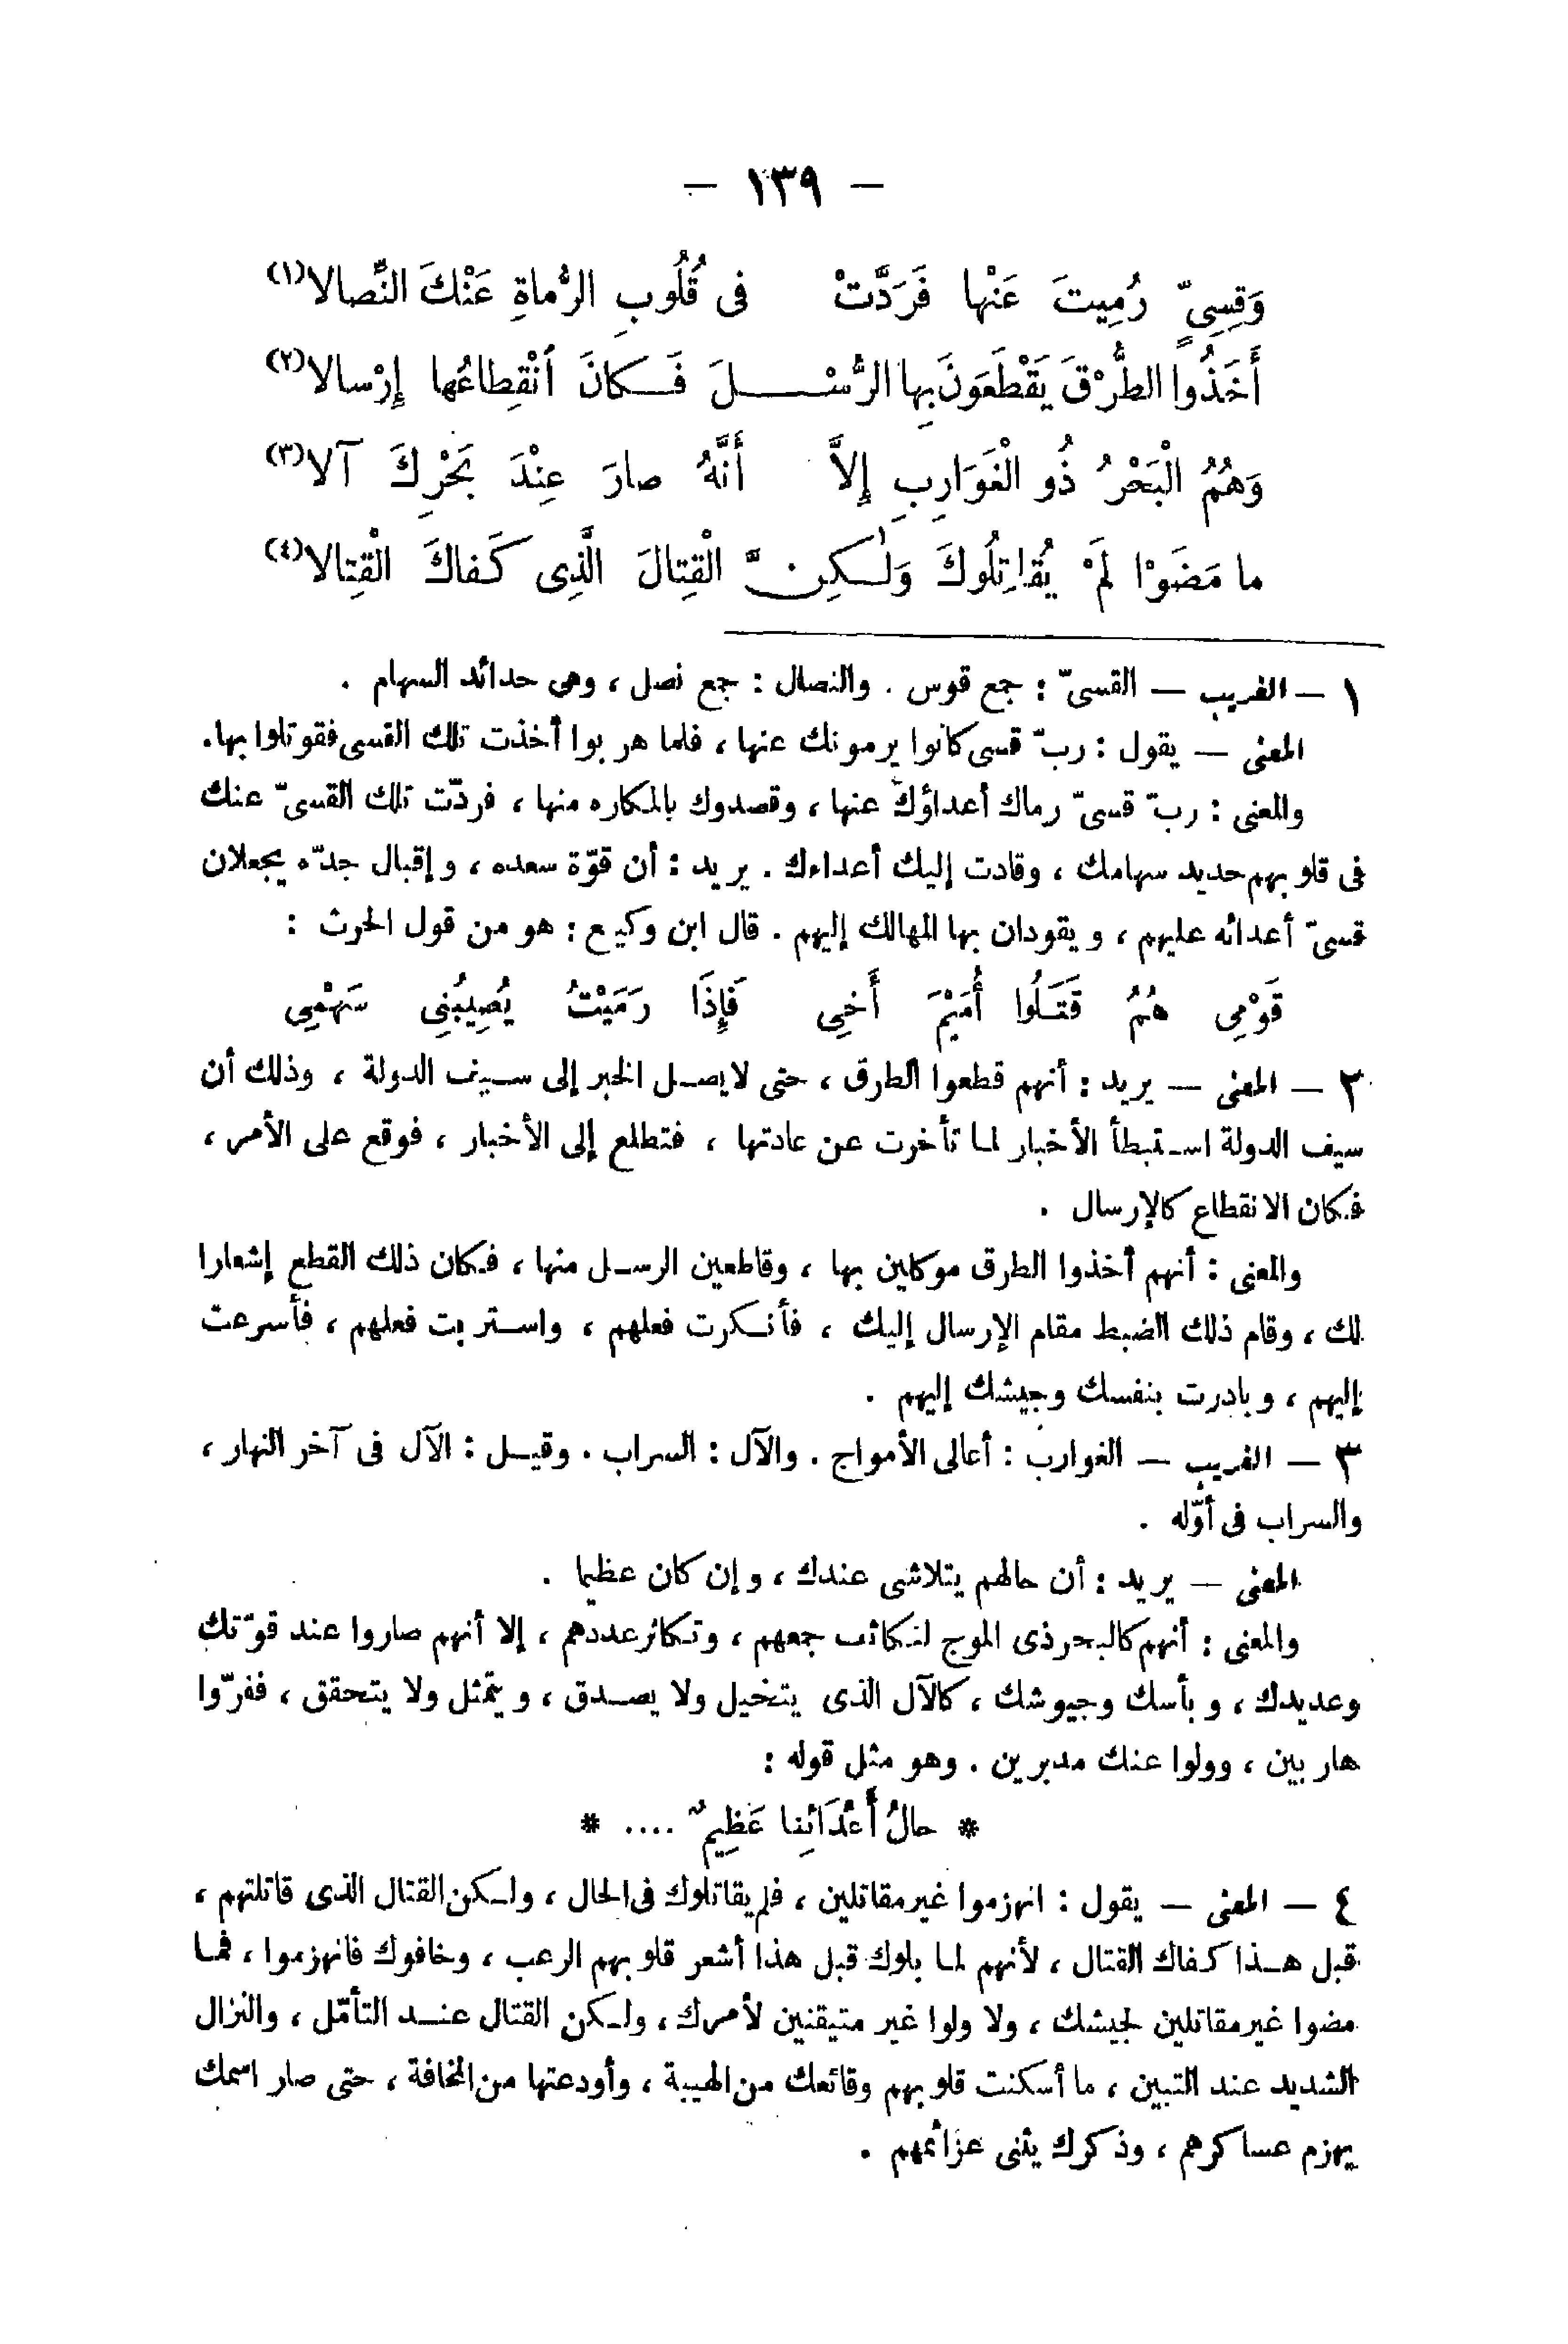 — ١٣٩ —
وَقِسِىٍّ رُمِيتَ عَنْها فَرَدَّتْ فى قُلُوبِ الرُّماةِ عَنْكَ النِّصالا(١)
أَخَذُوا الطُّرْقَ يَقْطَعَونَ بِها الرُّسْـلَ فَـكانَ اُنْقِطاعُها إِرْسالا(٢)
وَهُمُ الْبَحْرُ ذُو الْغَوَارِبِ إِلاَّ أَنَّهُ صارَ عِنْدَ بَحْرِكَ آلا(٣)
ما مَضَوْا لَمْ يُقاتِلُوكَ وَلٰـكِنَّ الْقِتالَ الَّذِى كَفاكَ الْقِتالا(٤)
١ — الغريب — القسىّ : جمع قوس . والنصال : جمع نصل ، وهى حدائد السهام .
المعنى — يقول : ربّ قسى كانوا يرمونك عنها ، فلما هربوا أخذت تلك القسى فقوتلوا بها.
والمعنى : ربّ قسىّ رماك أعداؤك عنها ، وقصدوك بالمكاره منها ، فردّت تلك القسىّ عنك
فى قلوبهم حديد سهامك ، وقادت إليك أعداءك . يريد : أن قوّة سعده ، وإقبال جدّه يجعلان
قسىّ أعدائه عليهم ، ويقودان بها المهالك إليهم . قال ابن وكيع : هو من قول الحرث :
قَوْمِى هُمُ قَتَلُوا أُمَيْمَ أَخِى فَإِذَا رَمَيْتُ يُصِيبُنِى سَهْمِى
٢ — المعنى — يريد : أنهم قطعوا الطرق ، حتى لايصل الخبر إلى سيف الدولة ، وذلك أن
سيف الدولة استبطأ الأخبار لما تأخرت عن عادتها ، فتطلع إلى الأخبار ، فوقع على الأمر ،
فكان الانقطاع كالإرسال .
والمعنى : أنهم أخذوا الطرق موكلين بها ، وقاطعين الرسل منها ، فكان ذلك القطع إشعارا
لك ، وقام ذلك الضبط مقام الإرسال إليك ، فأنكرت فعلهم ، واستربت فعلهم ، فأسرعت
إليهم ، وبادرت بنفسك وجيشك إليهم .
٣ — الغريب — الغوارب : أعالى الأمواج . والآل : السراب . وقيل : الآل فى آخر النهار ،
والسراب فى أوّله .
المعنى — يريد : أن حالهم يتلاشى عندك ، وإن كان عظيما .
والمعنى : أنهم كالبحر ذى الموج لتكاثف جمعهم ، وتكاثر عددهم ، إلا أنهم صاروا عند قوّتك
وعديدك ، وبأسك وجيوشك ، كالآل الذى يتخيل ولا يصدق ، ويتمثل ولا يتحقق ، ففرّوا
هاربين ، وولوا عنك مدبرين . وهو مثل قوله :
* حالُ أَعْدَائِنا عَظِيمٌ .... *
٤ — المعنى — يقول : انهزموا غير مقاتلين ، فلم يقاتلوك فى الحال ، ولكن القتال الذى قاتلتهم ،
قبل هذا كفاك القتال ، لأنهم لما بلوك قبل هذا أشعر قلوبهم الرعب ، وخافوك فانهزموا ، فما
مضوا غير مقاتلين لجيشك ، ولا ولوا غير متيقنين لأمرك ، ولكن القتال عند التأمّل ، والنزال
الشديد عند التبين ، ما أسكنت قلوبهم وقائعك من الهيبة ، وأودعتها من المخافة ، حتى صار اسمك
يهزم عساكرهم ، وذكرك يثنى عزائمهم .